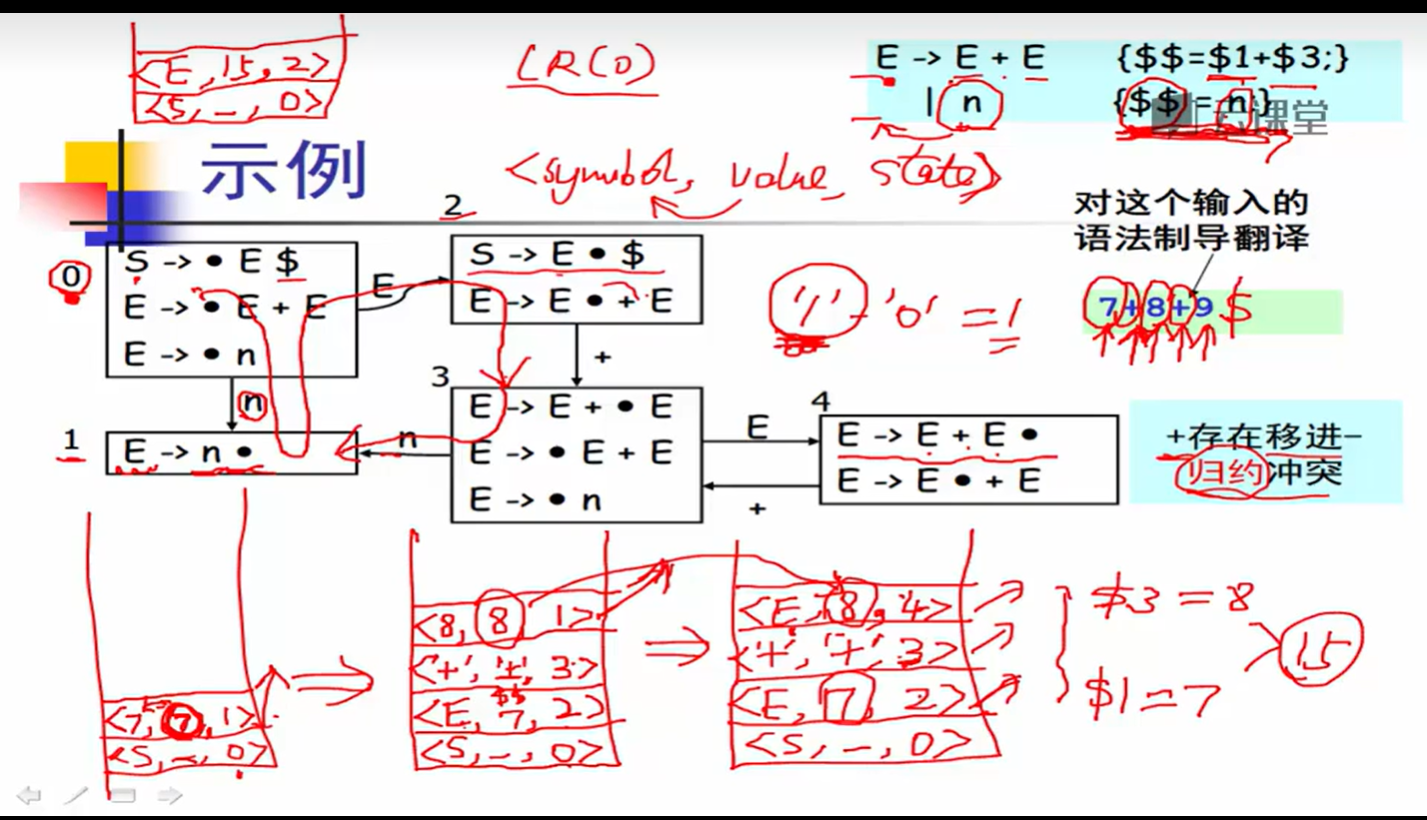 <E, 15, 2>
<S, -, 0>
LR(0)
E -> E + E {$$=$1+$3;}
| n {$$ = n;}
示例
<symbol, value, state>
对这个输入的
语法制导翻译
7+8+9 $
'1' - '0' = 1
0
S -> • E $
E -> • E + E
E -> • n
E
2
S -> E • $
E -> E • + E
+
n
1
E -> n •
n
3
E -> E + • E
E -> • E + E
E -> • n
E
+
4
E -> E + E •
E -> E • + E
+存在移进-
归约冲突
<7, 7, 1>
<S, -, 0>
<8, 8, 1>
<'+', '+', 3>
$$
<E, 7, 2>
<S, -, 0>
<E, 8, 4>
<'+', '+', 3>
<E, 7, 2>
<S, -, 0>
$3 = 8
15
$1 = 7